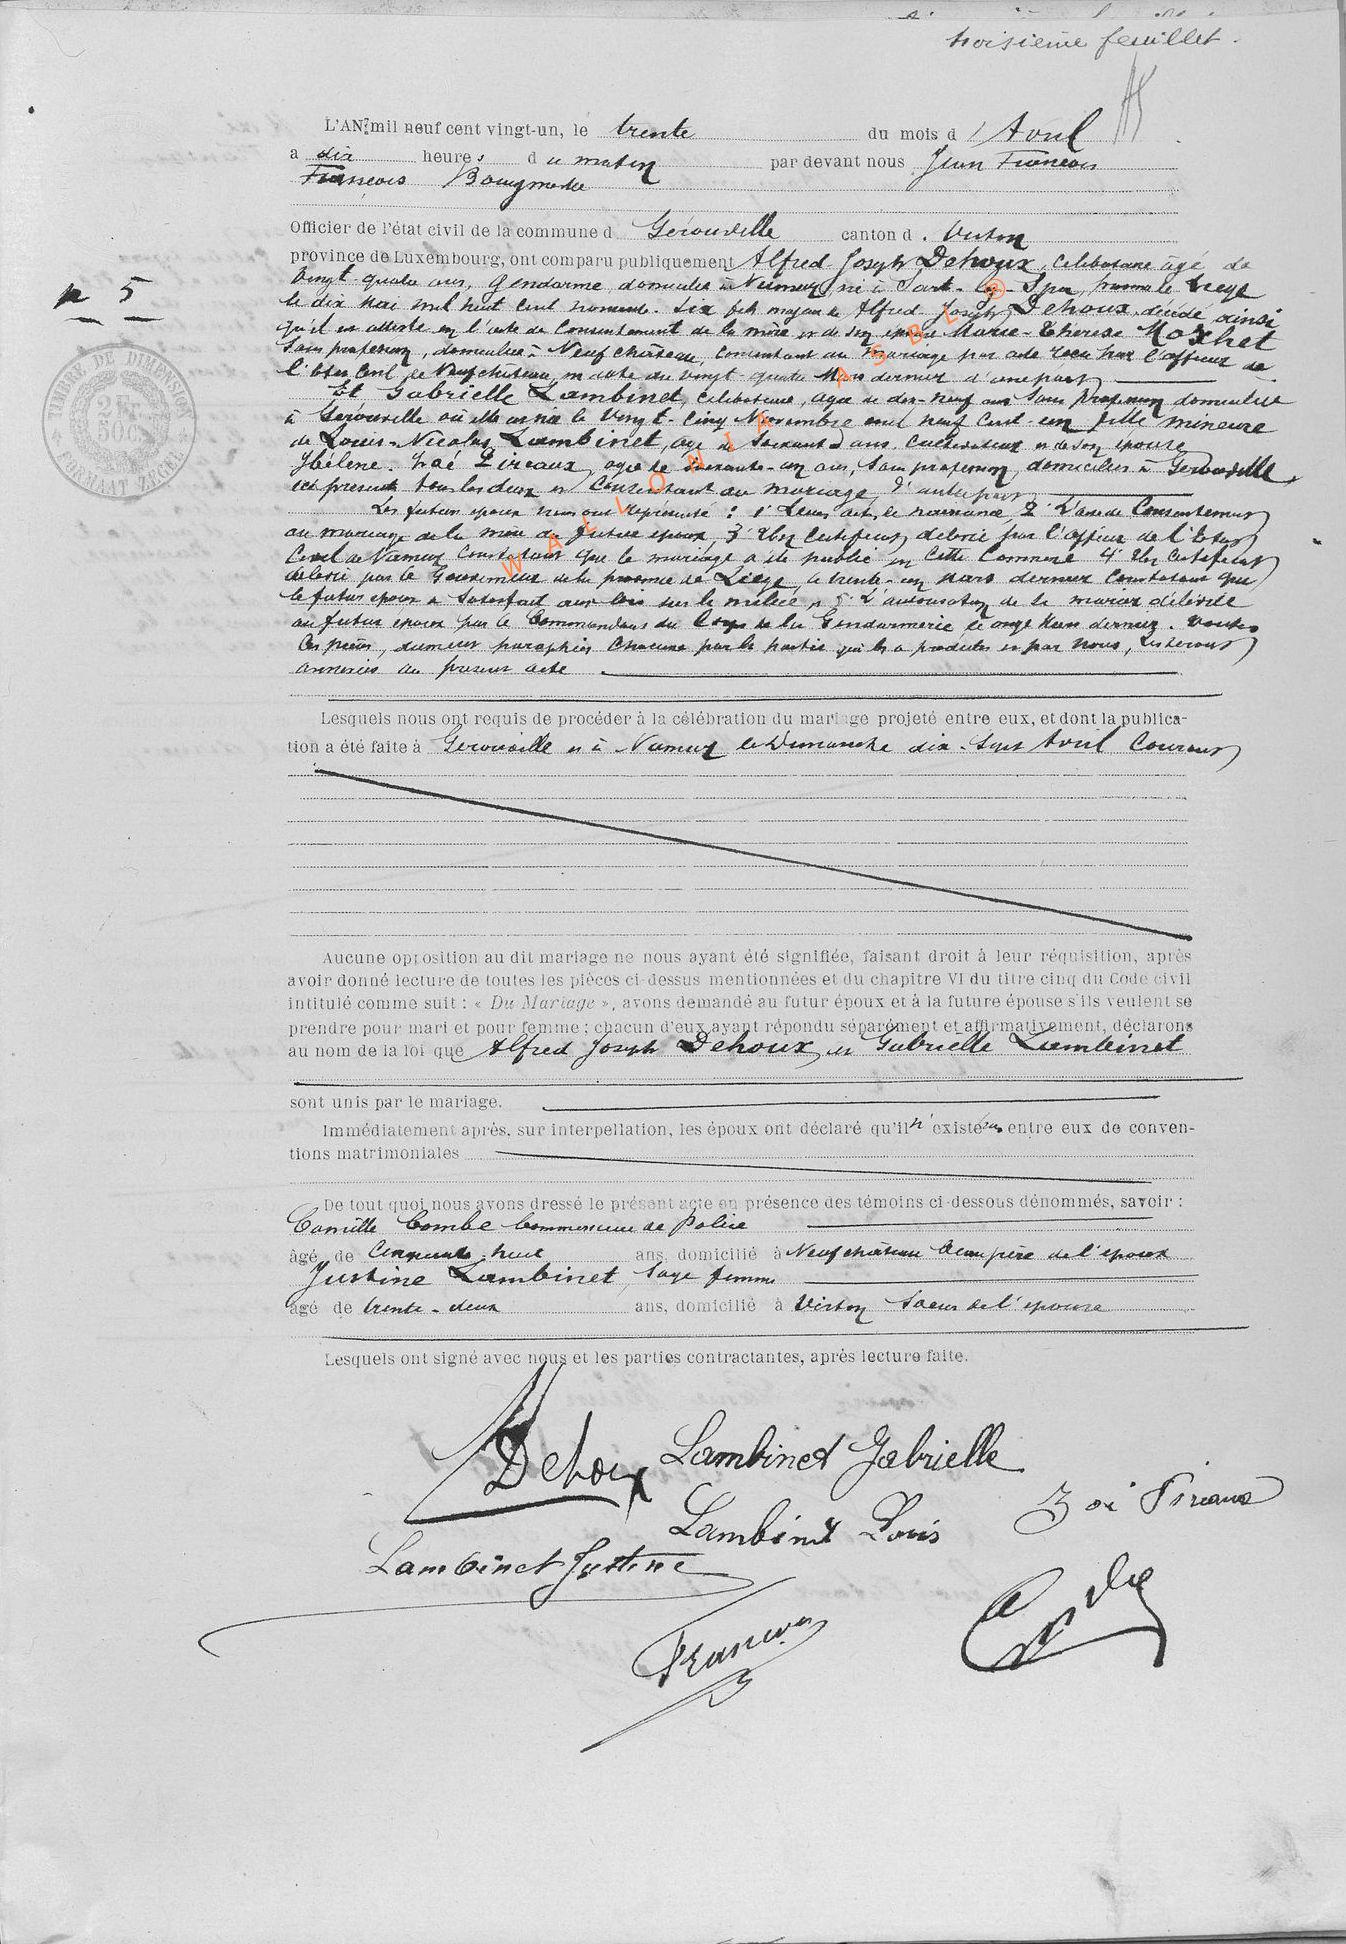 troisième feuillet.
L'AN mil neuf cent vingt-un, le trente du mois d'Avril
à dix heures du matin par devant nous Jean François
François Bourgmestre
Officier de l'état civil de la commune d Gérouville canton d. Virton
province de Luxembourg, ont comparu publiquement Alfred Joseph Dehoux, célibataire âgé de
vingt-quatre ans, gendarme, domicilié à Namur, né à Sart-lez-Spa, province de Liège
le dix mai mil huit cent nonante-six fils majeur de Alfred Joseph Dehoux, décédé ainsi
qu'il en atteste en l'acte de consentement de la mère et de son épouse Marie-Thérèse Moxhet
sans profession, domiciliée à Neufchâteau, consentant au mariage par acte reçu par l'officier de
l'état civil de Neufchâteau, en date du vingt-quatre Mars dernier d'une part
Et Gabrielle Lambinet, célibataire, âgée de dix-neuf ans sans profession domiciliée
à Gérouville où elle est née le vingt-cinq Novembre mil neuf cent-un fille mineure
de Louis-Nicolas Lambinet, âgé de soixante ans, cultivateur et de son épouse
Hélène-Zoé Pireaux, âgée de soixante-un ans, sans profession, domiciliés à Gérouville
ici présents tous les deux et consentant au mariage, d'autre part
Les futurs époux nous ont représenté : 1° Leurs actes de naissance, 2° L'acte de consentement
au mariage de la mère du futur époux, 3° Un certificat délivré par l'officier de l'État
Civil de Namur constatant que le mariage a été publié en cette commune 4° Un certificat
délivré par le Gouverneur de la province de Liège, le trente-un mars dernier constatant que
le futur époux a satisfait aux lois sur la milice, et 5° L'autorisation de se marier délivrée
au futur époux par le Commandant du Corps de la Gendarmerie, le onze Mars dernier. Toutes
ces pièces, dûment paraphées chacune par la partie qui les a produites et par nous, resteront
annexées au présent acte
Lesquels nous ont requis de procéder à la célébration du mariage projeté entre eux, et dont la publica-
tion a été faite à Gérouville et à Namur le Dimanche dix-sept Avril courant
n 5
TIMBRE DE DIMENSION
2 Fr.
50 c.
FORMAAT ZEGEL
WALLONIA ASBL ®
Aucune opposition au dit mariage ne nous ayant été signifiée, faisant droit à leur réquisition, après
avoir donné lecture de toutes les pièces ci-dessus mentionnées et du chapitre VI du titre cinq du Code civil
intitulé comme suit : « Du Mariage », avons demandé au futur époux et à la future épouse s'ils veulent se
prendre pour mari et pour femme ; chacun d'eux ayant répondu séparément et affirmativement, déclarons
au nom de la loi que Alfred Joseph Dehoux et Gabrielle Lambinet
sont unis par le mariage.
Immédiatement après, sur interpellation, les époux ont déclaré qu'il n'existe pas entre eux de conven-
tions matrimoniales
De tout quoi nous avons dressé le présent acte en présence des témoins ci-dessous dénommés, savoir :
Camille Combe Commissaire de Police
âgé de cinquante-huit ans, domicilié à Neufchâteau beau père de l'époux
Justine Lambinet, Sage femme
âgé de trente-deux ans, domicilié à Virton soeur de l'épouse
Lesquels ont signé avec nous et les parties contractantes, après lecture faite.
Dehoux Lambinet Gabrielle
Lambinet Louis Zoé Pireaux
Lambinet Justine
François